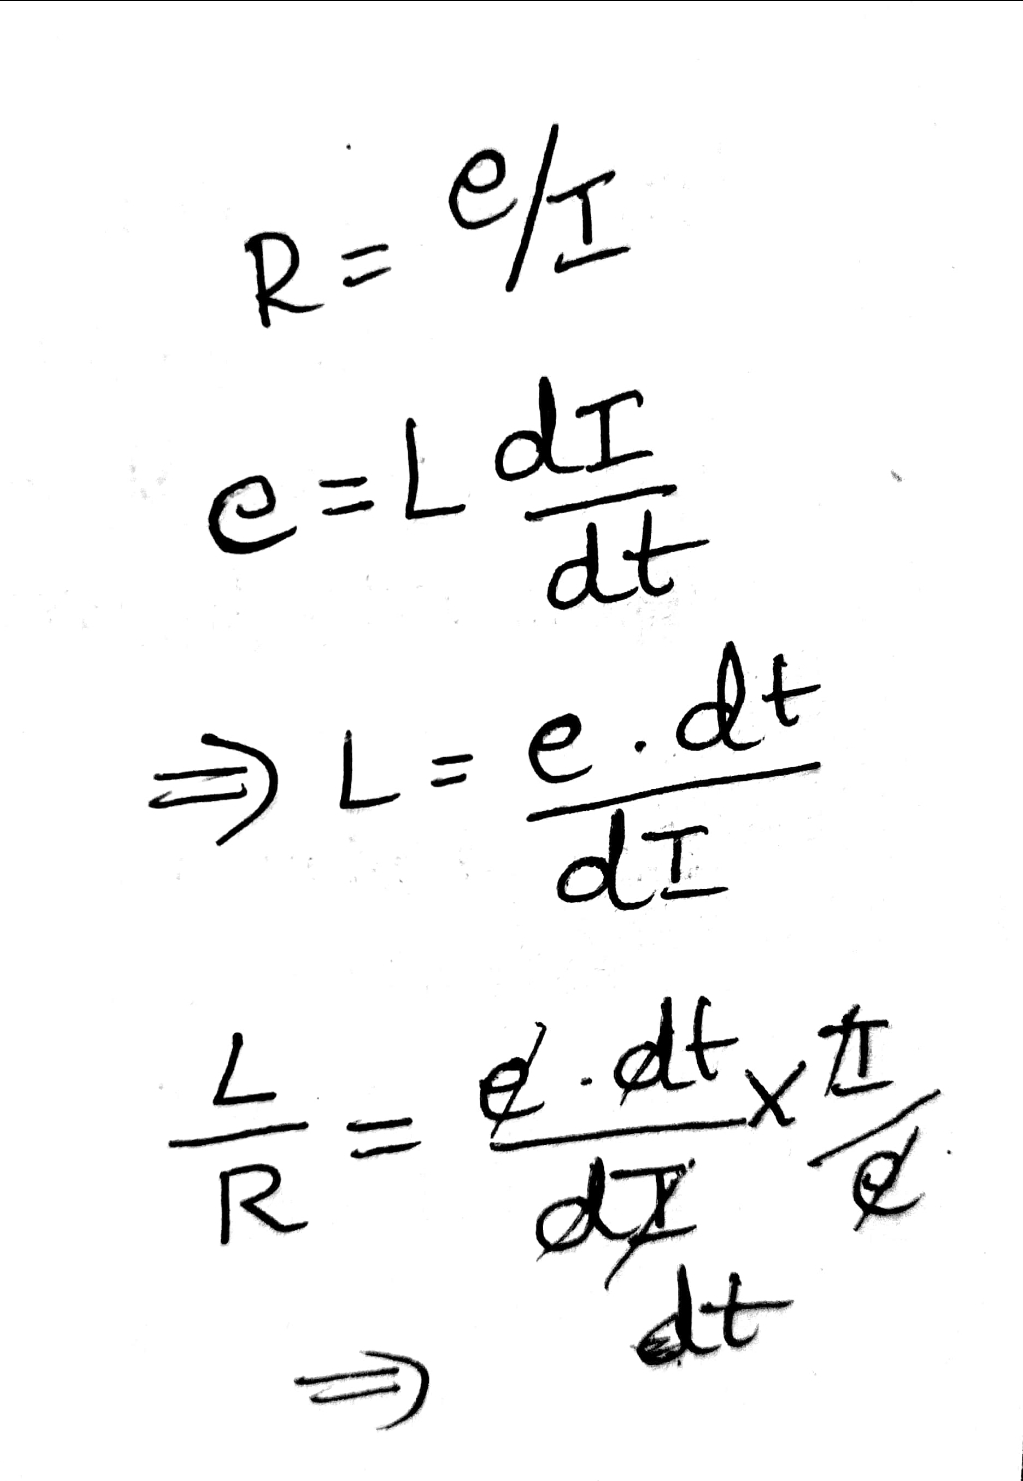 R = e/I
e = L dI/dt
⇒ L = e . dt/dI
L/R = e . dt/dI × I/e
⇒ dt